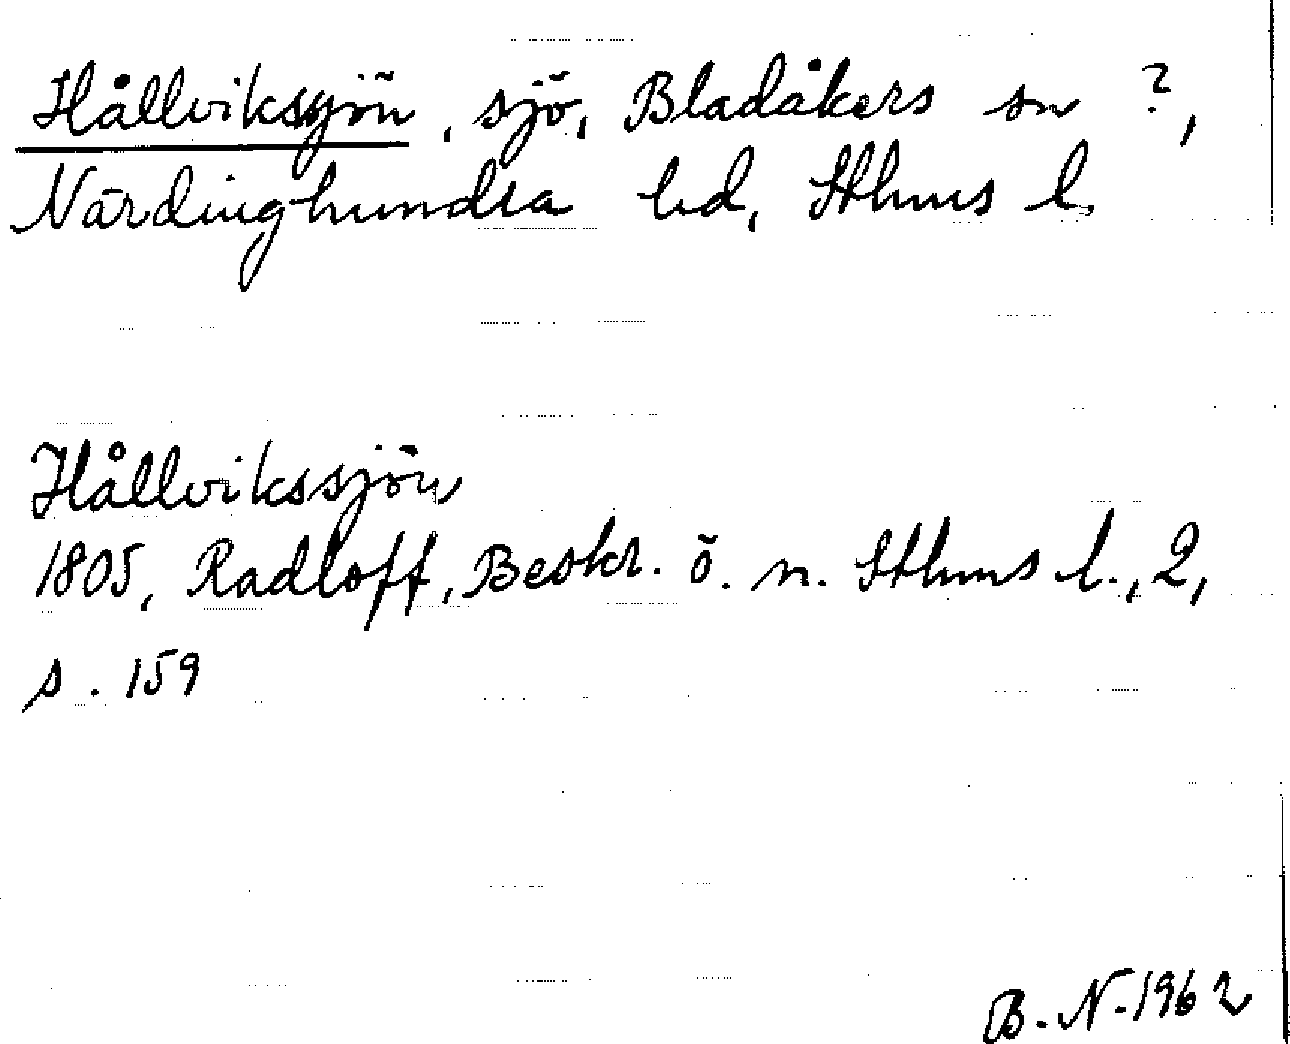 Hållviksjön, sjö, Bladåkers sn ?,
Närdinghundra hd, Sthms l.
Hållvikssjön
1805, Radloff, Beskr. ö. n. Sthms l., 2,
s. 159
B. N. 1962